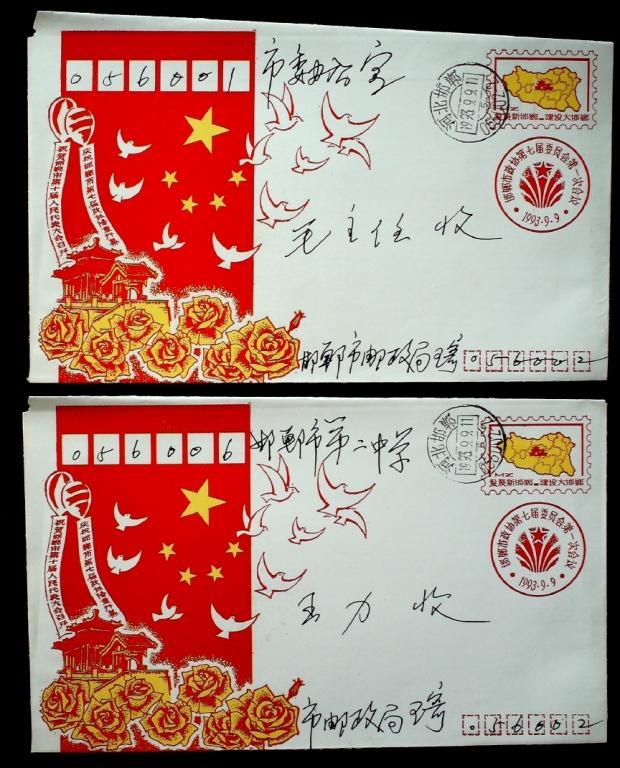 056001
市委办公室
河北邯郸
1993.9.9.11
发展新邯郸 建设大邯郸
邯郸市政协第七届委员会第一次会议
1993-9-9
庆祝邯郸市第七届政协隆重开幕
祝贺邯郸市第十届人民代表大会召开
毛主任 收
邯郸市邮政局
056002
056006
邯郸市第二中学
河北邯郸
1993.9.9.11
发展新邯郸 建设大邯郸
邯郸市政协第七届委员会第一次会议
1993-9-9
庆祝邯郸市第七届政协隆重开幕
祝贺邯郸市第十届人民代表大会召开
王力 收
市邮政局
056002